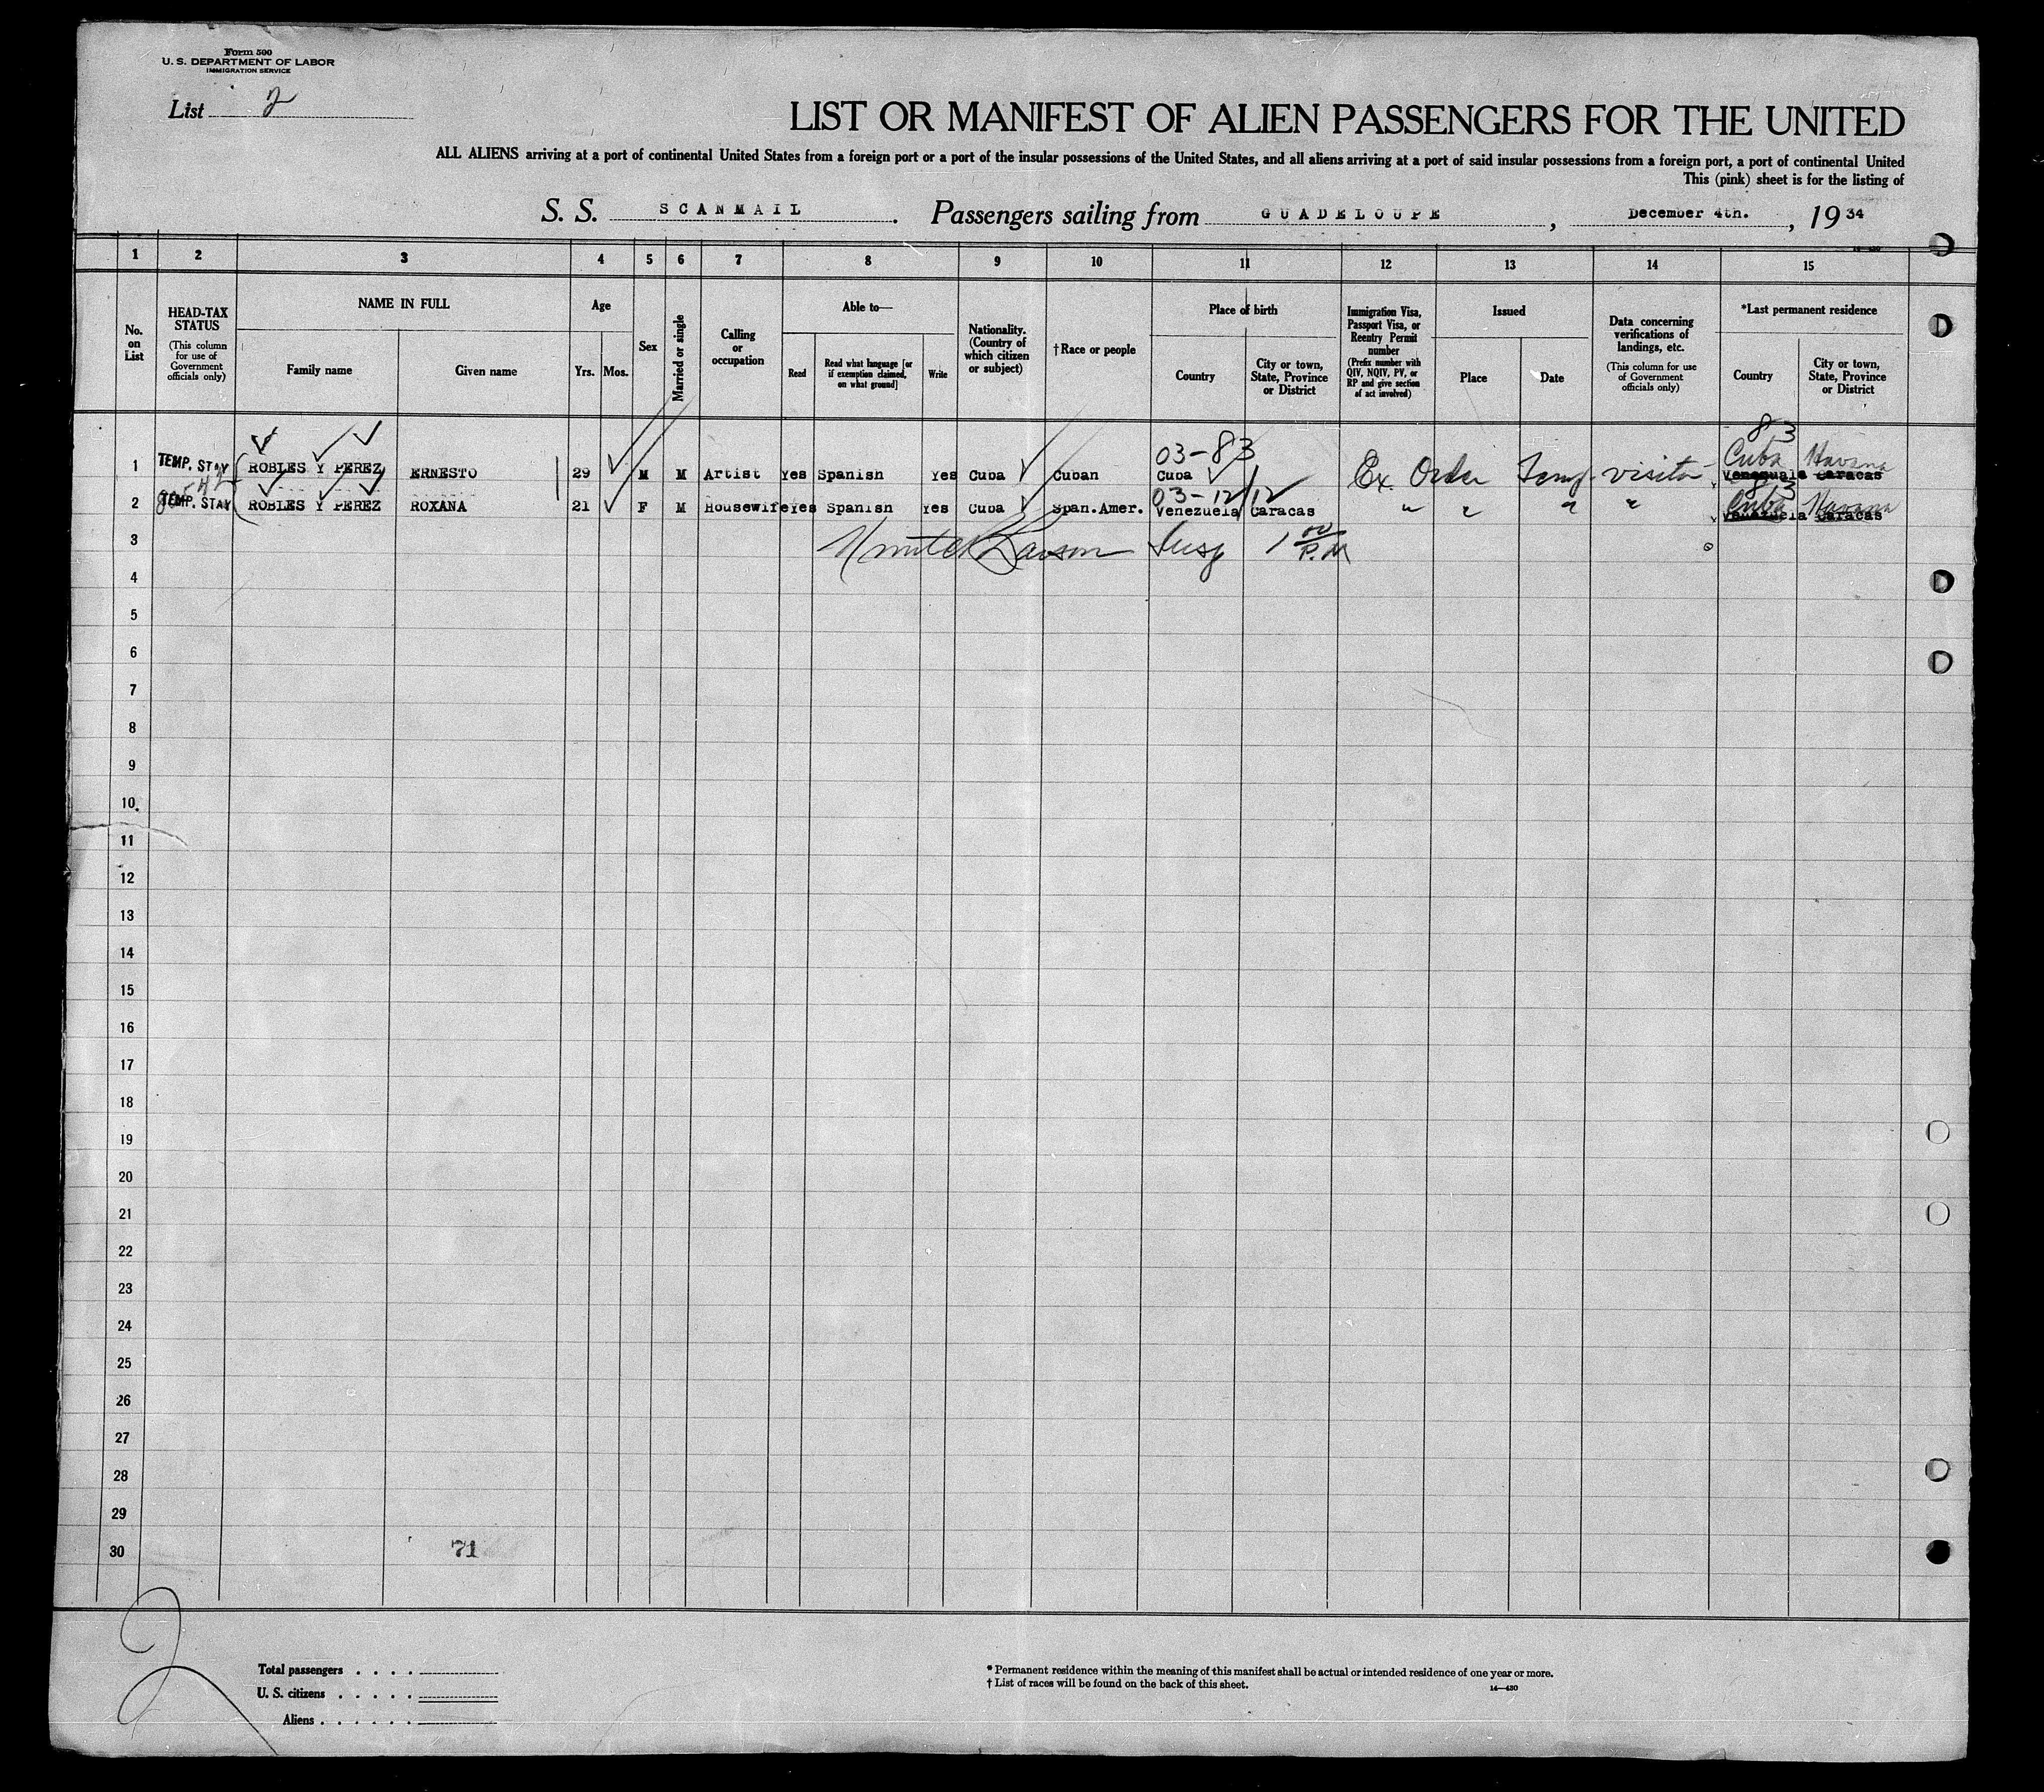 Form 500
U. S. DEPARTMENT OF LABOR
IMMIGRATION SERVICE
List 2
LIST OR MANIFEST OF ALIEN PASSENGERS FOR THE UNITED
ALL ALIENS arriving at a port of continental United States from a foreign port or a port of the insular possessions of the United States, and all aliens arriving at a port of said insular possessions from a foreign port, a port of continental United
This (pink) sheet is for the listing of
S. S. SCANMAIL. Passengers sailing from GUADELOUPE, December 4th., 1934
14-430
1 2 3 4 5 6 7 8 9 10 11 12 13 14 15
No. on List
HEAD-TAX STATUS
(This column for use of Government officials only)
NAME IN FULL
Family name
Given name
Age
Yrs.
Mos.
Sex
Married or single
Calling or occupation
Able to—
Read
Read what language [or if exemption claimed, on what ground]
Write
Nationality. (Country of which citizen or subject)
†Race or people
Place of birth
Country
City or town, State, Province or District
Immigration Visa, Passport Visa, or Reentry Permit number
(Prefix number with QIV, NQIV, PV, or RP and give section of act involved)
Issued
Place
Date
Data concerning verifications of landings, etc.
(This column for use of Government officials only)
*Last permanent residence
Country
City or town, State, Province or District
83
03-83
Cuba Havana
1 TEMP. STAY ROBLES Y PEREZ ERNESTO 29 M M Artist Yes Spanish Yes Cuba Cuban Cuba Ex. Order Temp. visitor Venezuela Caracas
03-12/12
83
Cuba Havana
2 TEMP. STAY ROBLES Y PEREZ ROXANA 21 F M Housewife Yes Spanish Yes Cuba Span.Amer. Venezuela Caracas " " " " Venezuela Caracas
3 Insp 1 00 P.M
4
5
6
7
8
9
10
11
12
13
14
15
16
17
18
19
20
21
22
23
24
25
26
27
28
29
30 71
2
Total passengers . . . .
U. S. citizens . . . . .
Aliens . . . . . .
* Permanent residence within the meaning of this manifest shall be actual or intended residence of one year or more.
† List of races will be found on the back of this sheet.
14—430